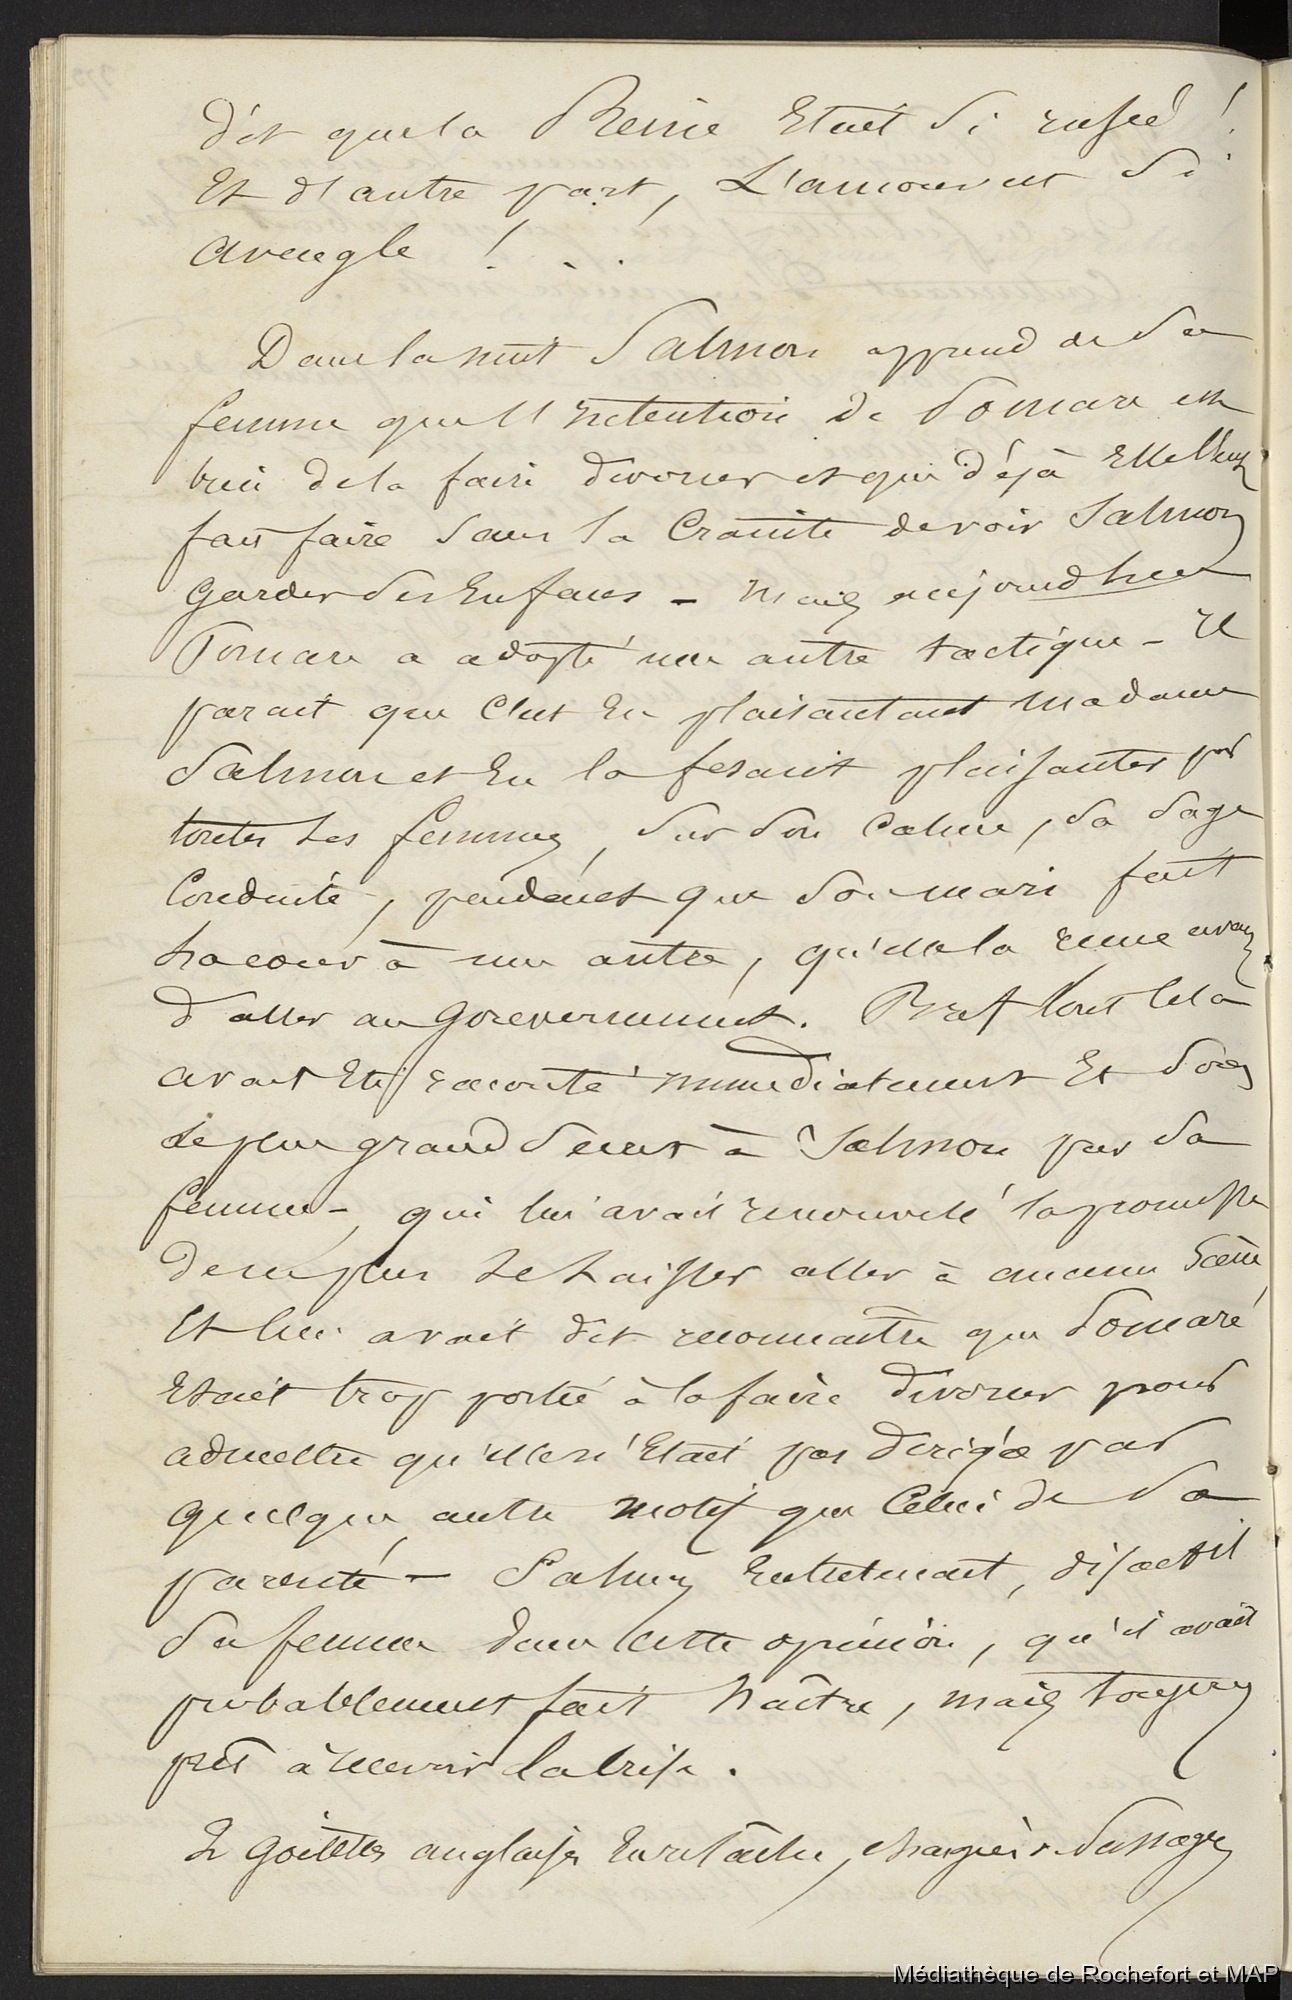 dit que la Reine Etait si rusée !
Et d'autre part, L'amour est si
aveugle ! . .
Dans la nuit Salmon apprend de sa
femme que l'intention de Pomare est
bien de la faire divorcer et que déjà Elle l'eut
fait faire sans la Crainte de voir Salmon
garder les Enfans - mais aujourd'hui
Pomare a adopté une autre tactique - Il
parait que C'est En plaisantant madame
Salmon et En la fesant plaisanter par
toutes les femmes, sur son Calme, sa sage
Conduite, pendant que son mari fait
la cour à une autre, qu'elle la
d'aller au gouvernement. Bref tout cela
avait Eté raconté immédiatement Et sous
le plus grand secret à Salmon par sa
femme -, qui lui avait renouvelé la promesse
de ne plus se Laisser aller à aucune Scène
Et lui avait dit reconnaitre que Pomaré
Etait trop portée à la faire divorcer pour
admettre qu'elle n'Etait pas dirigée par
quelque autre motif que Celui de sa
parenté - Salmon Entretenait, disait il
sa femme dans Cette opinion, qu'il avait
probablement fait Naître, mais toujours
prêt à recevoir la brise.
2 goëlettes anglaises En relâche, chargées
Médiathèque de Rochefort et MAP